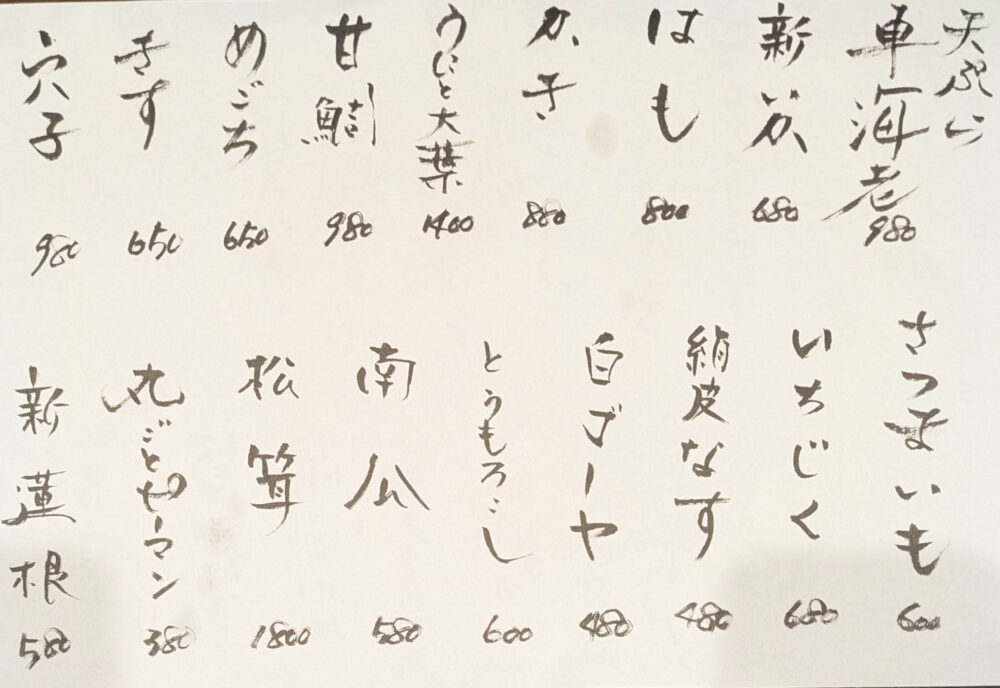 天ぷら
車海老 980
新いか 680
はも 800
かき 880
うにと大葉 1400
甘鯛 980
めごち 650
きす 650
穴子 980
さつまいも 600
いちじく 680
絹皮なす 480
白ゴーヤ 480
とうもろこし 600
南瓜 580
松茸 1800
丸ごとピーマン 380
新蓮根 580